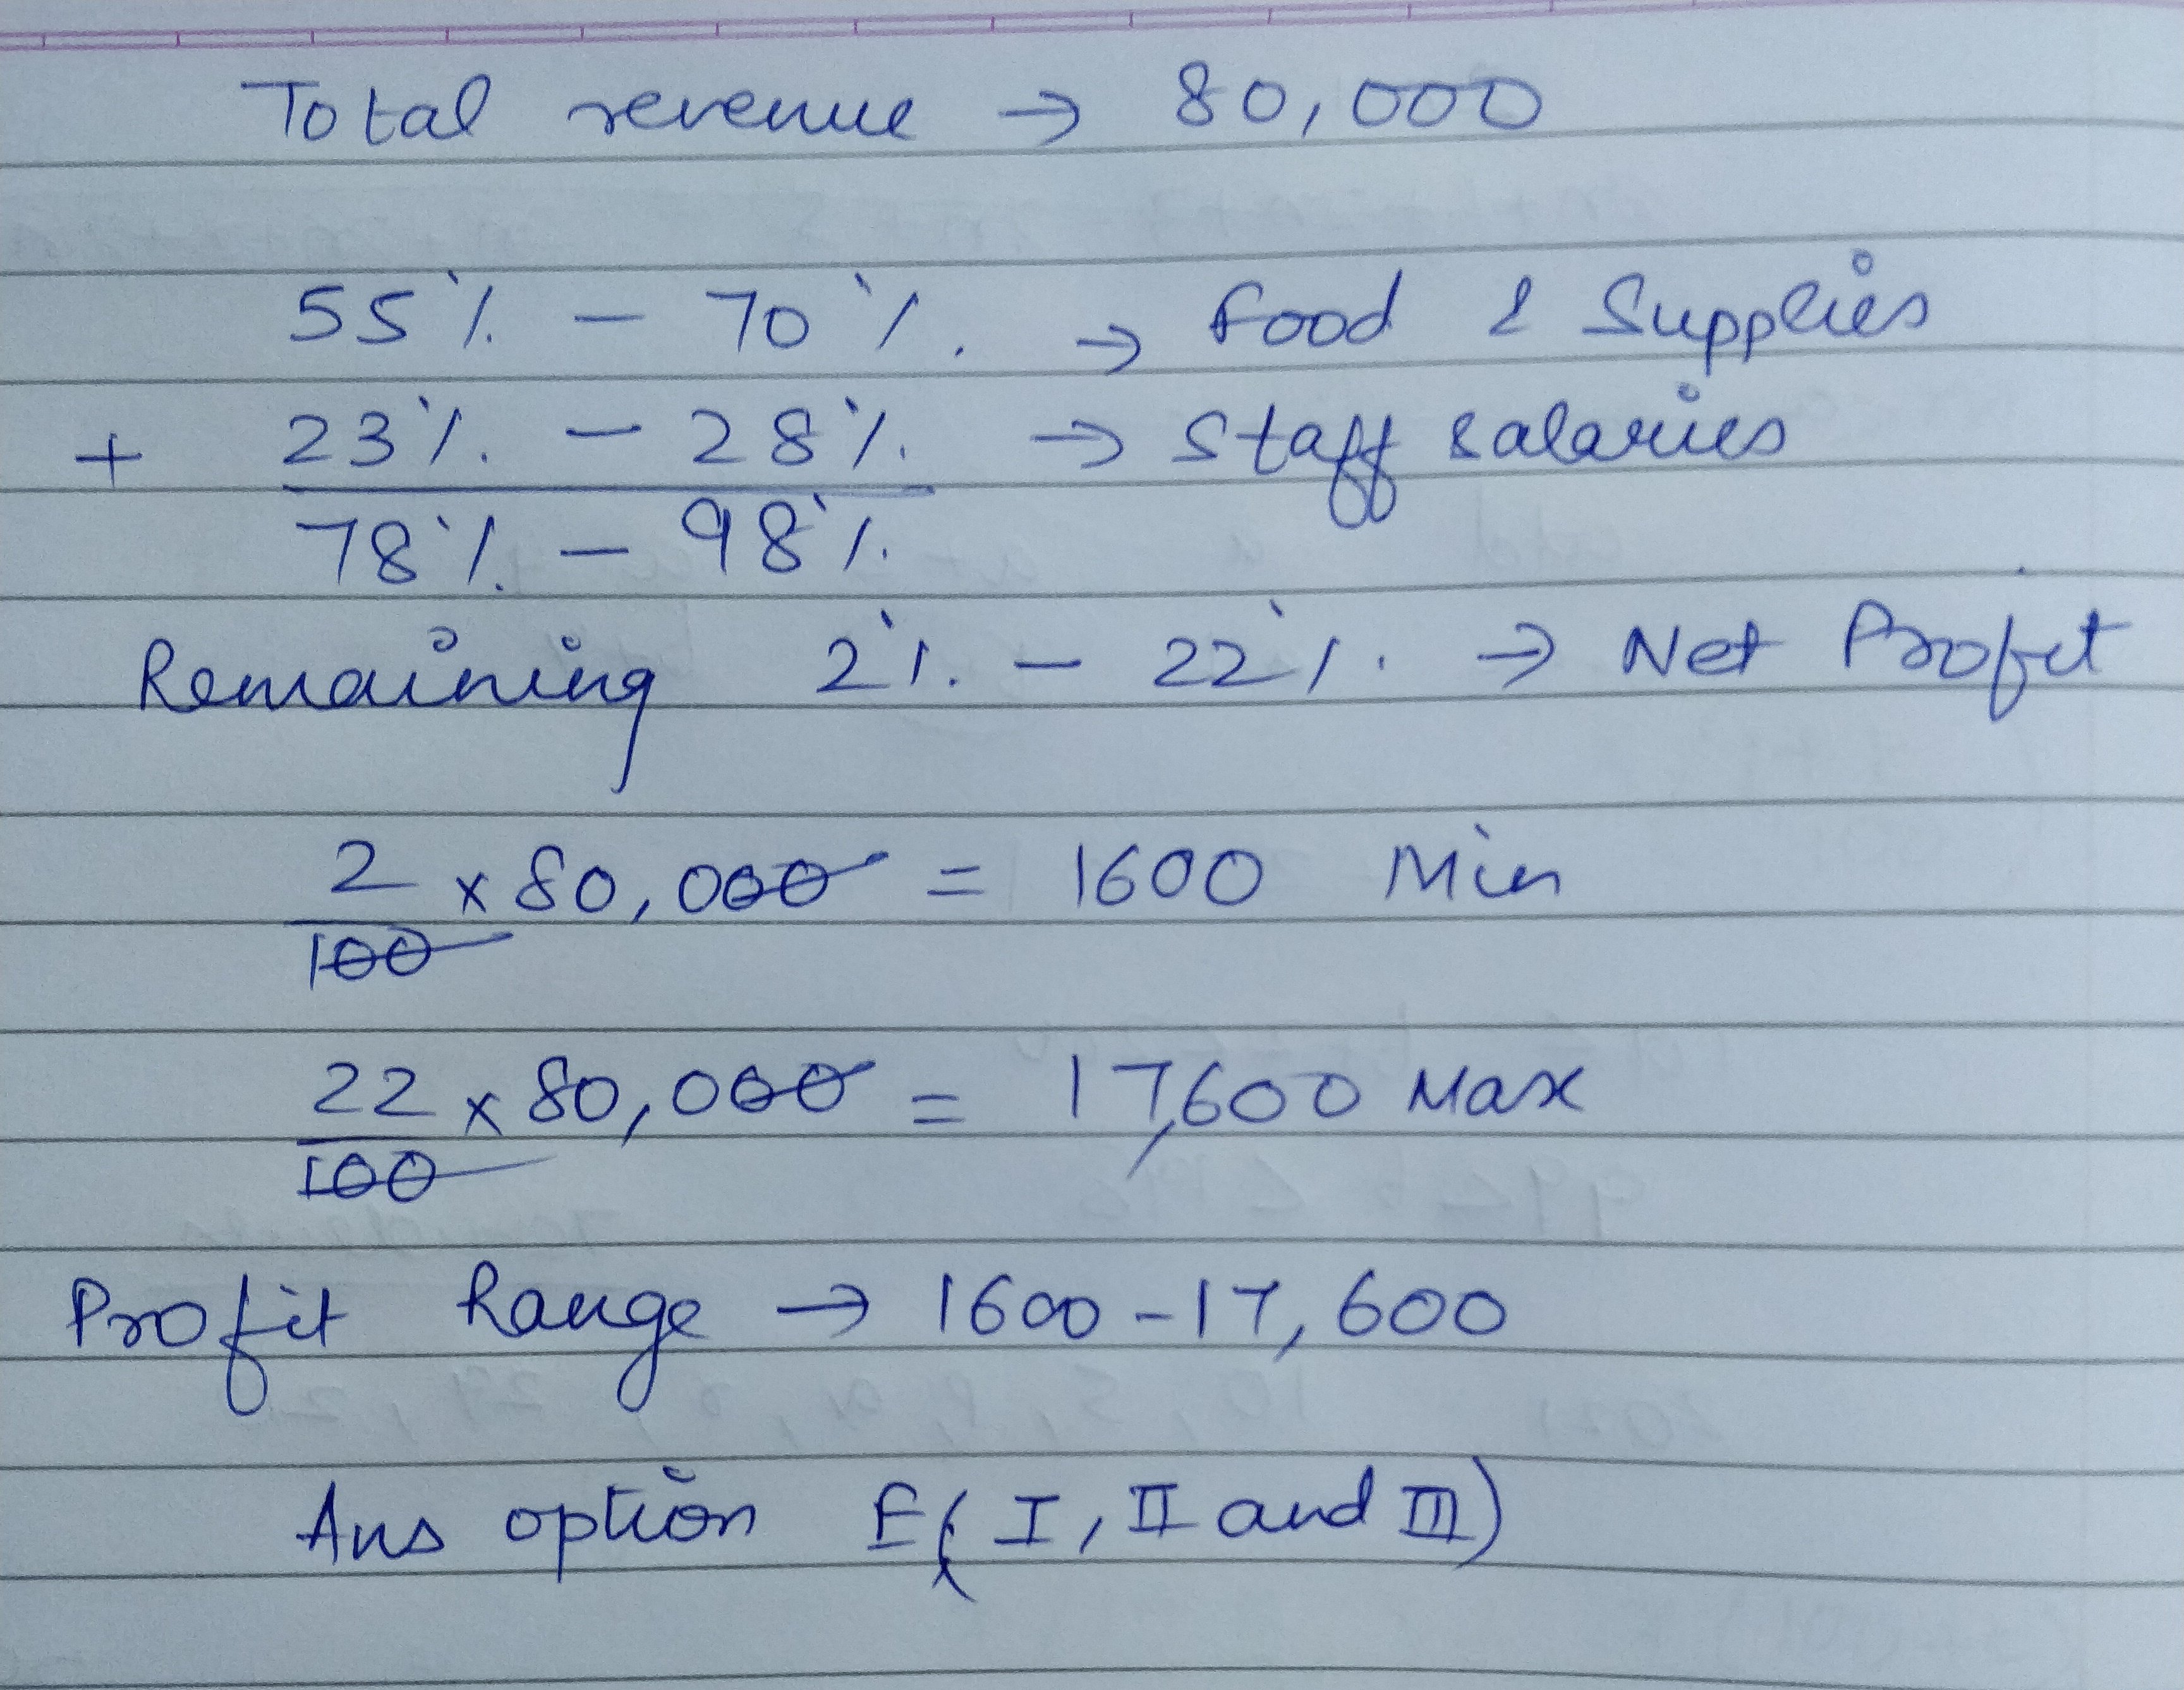 Total revenue → 80,000
55% - 70%. → Food & Supplies
+ 23%. - 28%. → Staff salaries
78%. - 98%.
Remaining 2%. - 22%. → Net Profit
2/100 x 80,000 = 1600 Min
22/100 x 80,000 = 17,600 Max
Profit Range → 1600 - 17,600
Ans option E (I, II and III)